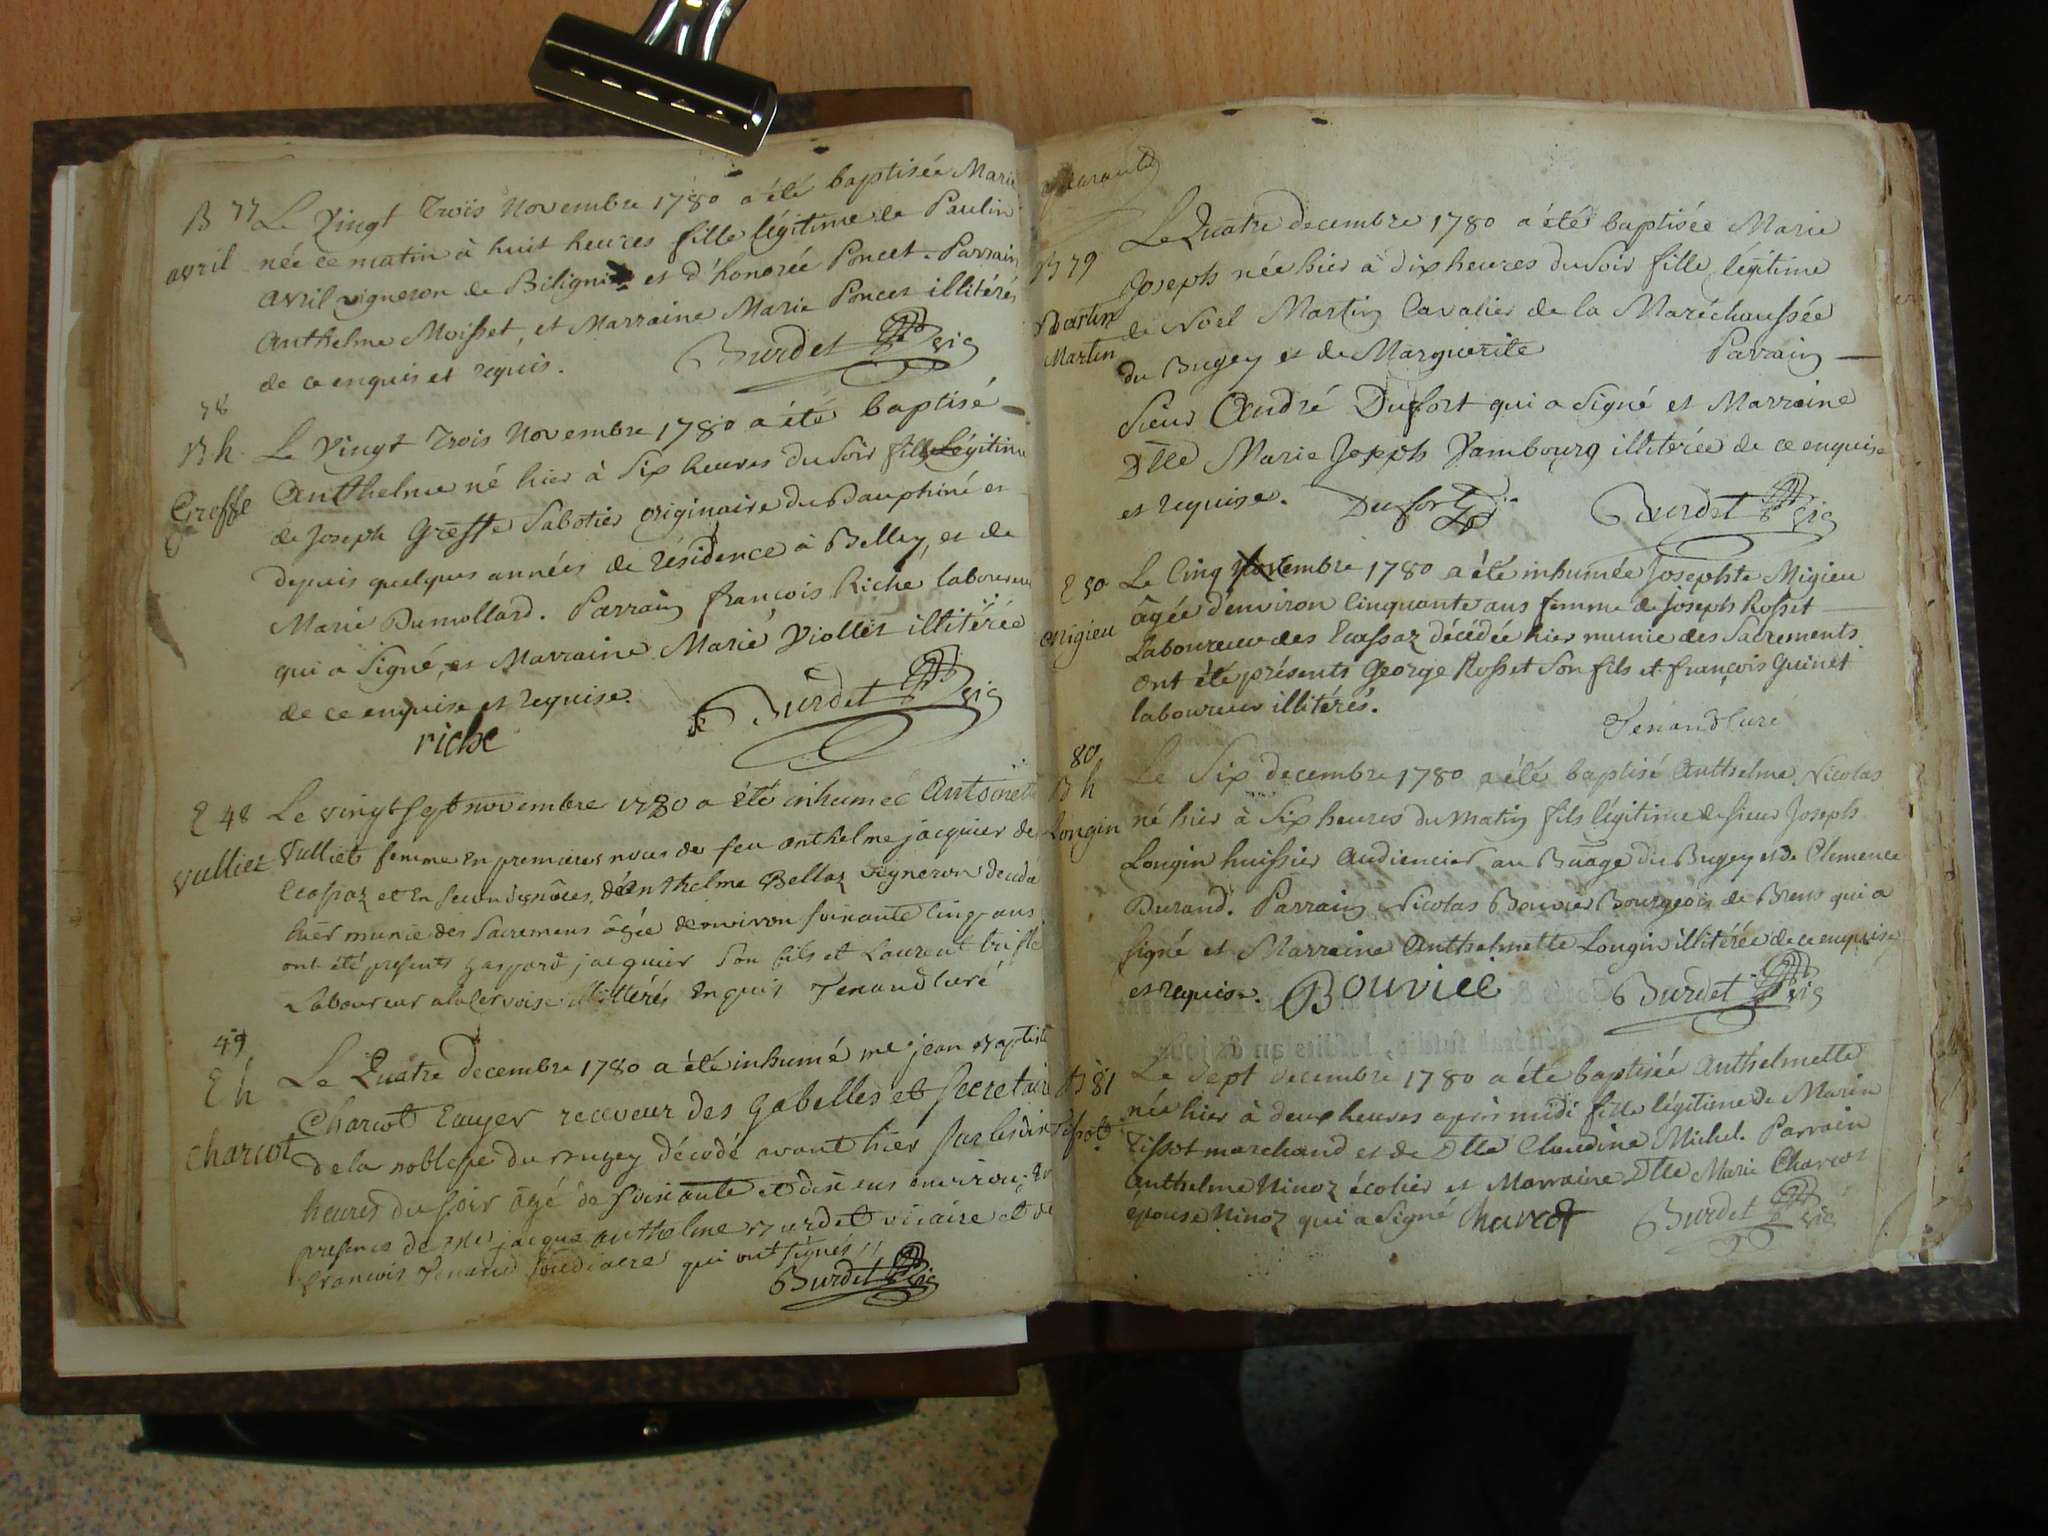 B 77
avril
Le Vingt Trois Novembre 1780 a été baptisée Marie
née ce matin à huit heures fille légitime de Paulin
avril vigneron de Biligni et d'honorée Poncet. Parrain
Anthelme Moisset, et Marraine Marie Poncet illitérés
de ce enquis et requis. Burdet vic
78
B h
Greffe
Le Vingt Trois Novembre 1780 a été baptisé
Anthelme né hier à Six heures du Soir fils Légitime
de Joseph Greffe Sabotier originaire du Dauphiné et
depuis quelques années de résidence à Belley, et de
Marie Dumollard. Parrain françois Riche laboureur
qui a Signé, et Marraine Marie Viollet illitérée
de ce enquise et requise. Burdet vic
riche
E 48
vulliet
Le vingt sept novembre 1780 a été inhumée Antoinette
Vulliet femme en premieres noces de feu anthelme jacquier de
Ecassaz et en secondes noces, de Anthelme Bellaz vigneron décédée
hier munie des Sacremens âgée denviron soixante cinq ans
ont été presents gaspard jacquier Son fils et Laurent
Laboureur a la Cervoise illitérés Enquis Tenand curé
49
E h
charcot
Le Quatre decembre 1780 a été inhumé me jean baptiste
Charcot Ecuyer receveur des gabelles et secretaire
de la noblesse du Bugey décédé avant hier sur les dix
heures du soir âgé de soixante et dix ans environ, en
presence de mes jacque anthelme Burdet vicaire et de
francois Tenand soudiacre qui ont signés //
Burdet vic
quarante
B 79
Martin
Martin
Le Quatre decembre 1780 a été baptisée Marie
Joseph née hier à dix heures du Soir fille légitime
de Noël Martin Cavalier de la Maréchaussée
du Bugey et de Marguerite Parrain
Sieur André Dufort qui a Signé et Marraine
Dlle Marie Joseph Jambourg illitérée de ce enquise
et requise. Dufort Burdet vic
E 50
Migieu
Le Cinq embre 1780 a été inhumée Josephte Migieu
âgée d'environ Cinquante ans femme de Joseph Rosset
Laboureur des Ecassaz décédée hier munie des Sacrements
ont été présents George Rosset Son fils et françois Guinet
laboureur illitérés.
Tenand Curé
80
B h
Longin
Le Six decembre 1780 a été baptisé Anthelme Nicolas
né hier à Six heures du matin fils légitime de Sieur Joseph
Longin huissier Audiencier au Baage du Bugey et de Clemence
Durand. Parrain Nicolas Bouvier Bourgeois de Brens qui a
signé et Marraine Anthelmette Longin illitérée de ce enquise
et requise. Bouvier Burdet vic
B 81
Tissot
Le Sept decembre 1780 a été baptisée Anthelmette
née hier à deux heures après midi fille légitime de Marin
Tissot marchand et de Dlle Claudine Michel. Parrain
Anthelme Ninoz écolier et Marraine Dlle Marie Charcot
epouse Ninoz qui a Signé Charcot Burdet vic